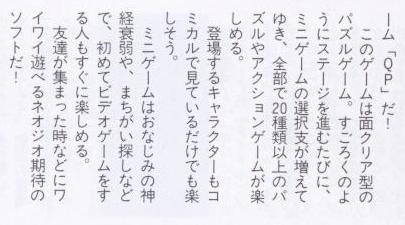 ーム「QP」だ！
　このゲームは面クリア型の
パズルゲーム。すごろくのよ
うにステージを進むたびに、
ミニゲームの選択支が増えて
ゆき、全部で20種類以上のパ
ズルやアクションゲームが楽
しめる。
　登場するキャラクターもコ
ミカルで見ているだけでも楽
しそう。
　ミニゲームはおなじみの神
経衰弱や、まちがい探しなど
で、初めてビデオゲームをす
る人もすぐに楽しめる。
　友達が集まった時などにワ
イワイ遊べるネオジオ期待の
ソフトだ！